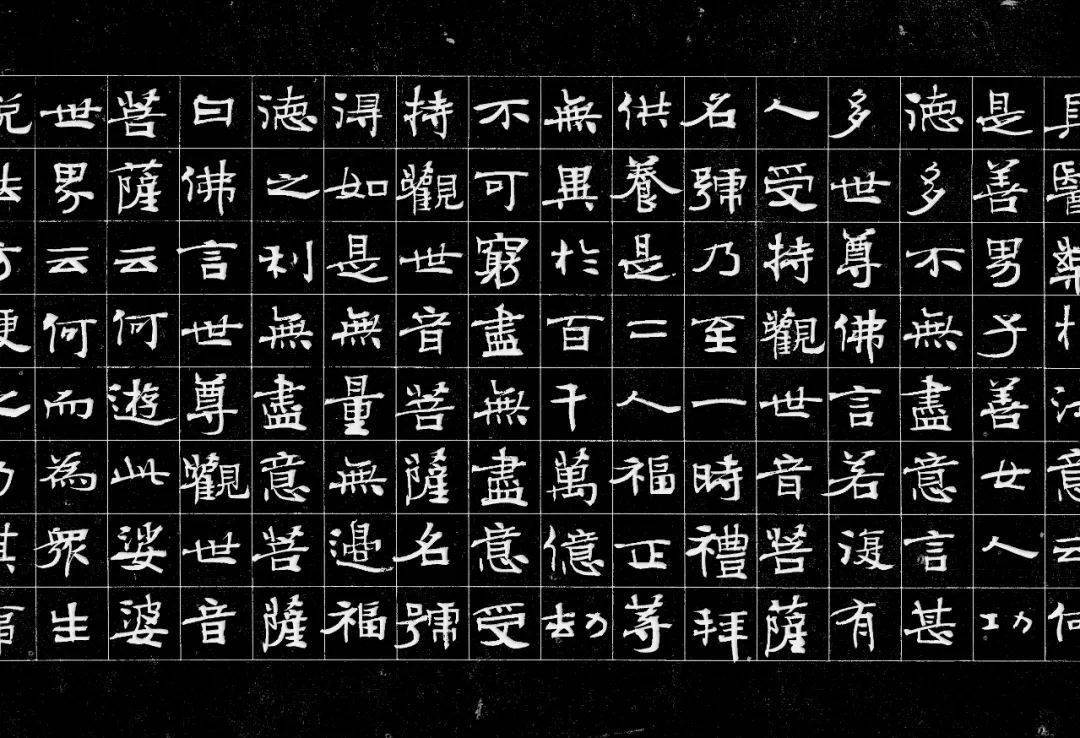 具醫藥於汝意云何
是善男子善女人功
德多不無盡意言甚
多世尊佛言若復有
人受持觀世音菩薩
名號乃至一時禮拜
供養是二人福正等
無異於百千萬億劫
不可窮盡無盡意受
持觀世音菩薩名號
得如是無量無邊福
德之利無盡意菩薩
白佛言世尊觀世音
菩薩云何遊此娑婆
世界云何而為眾生
說法方便之力其事